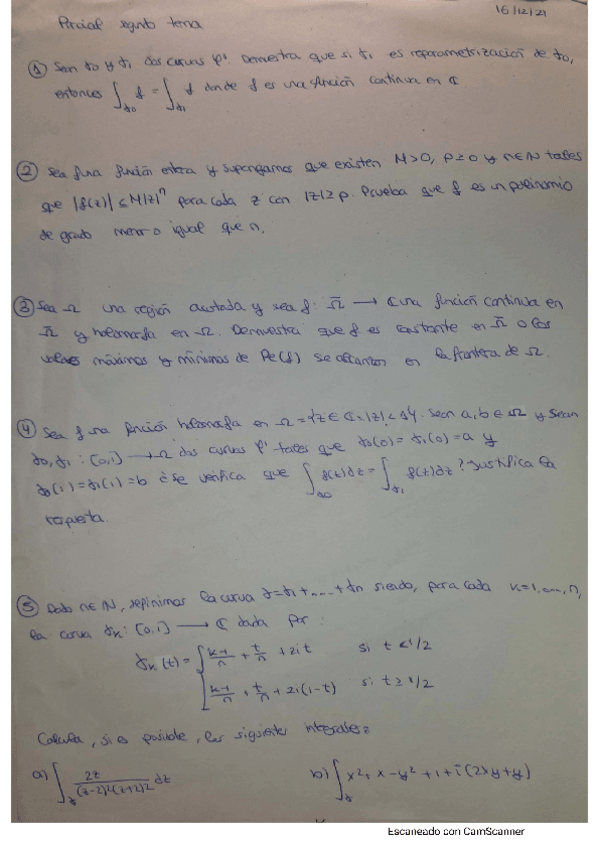 16/12/21
Parcial segundo tema
① Sean γ0 y γ1 dos curvas C¹. Demuestra que si γ1 es reparametrización de γ0,
entonces ∫γ0 f = ∫γ1 f donde f es una función continua en ℂ
② Sea f una función entera y supongamos que existen M>0, ρ≥0 y n∈N tales
que |f(z)| ≤ M|z|^n para cada z con |z|≥ρ. Prueba que f es un polinomio
de grado menor o igual que n.
③ Sea Ω una región acotada y sea f: Ω̄ → ℂ una función continua en
Ω̄ y holomorfa en Ω. Demuestra que f es constante en Ω̄ o los
valores máximos y mínimos de Re(f) se alcanzan en la frontera de Ω.
④ Sea f una función holomorfa en Ω={z∈ℂ:|z|<1}. Sean a,b∈Ω y sean
γ0,γ1: [0,1] → Ω dos curvas C¹ tales que γ0(0)=γ1(0)=a y
γ0(1)=γ1(1)=b ¿Se verifica que ∫γ0 f(z)dz = ∫γ1 f(z)dz? Justifica la
respuesta.
⑤ Dado n∈N, definimos la curva γ=γ1+...+γn siendo, para cada k=1,...,n,
la curva γk: [0,1] → ℂ dada por:
γk(t) = { (k-1)/n + t/n + 2it si t<1/2
(k-1)/n + t/n + 2i(1-t) si t≥1/2
Calcula, si es posible, las siguientes integrales:
a) ∫γ 2z/((z-2)²(z+2)²) dz b) ∫γ x²+x-y²+1+i(2xy+y)
Escaneado con CamScanner